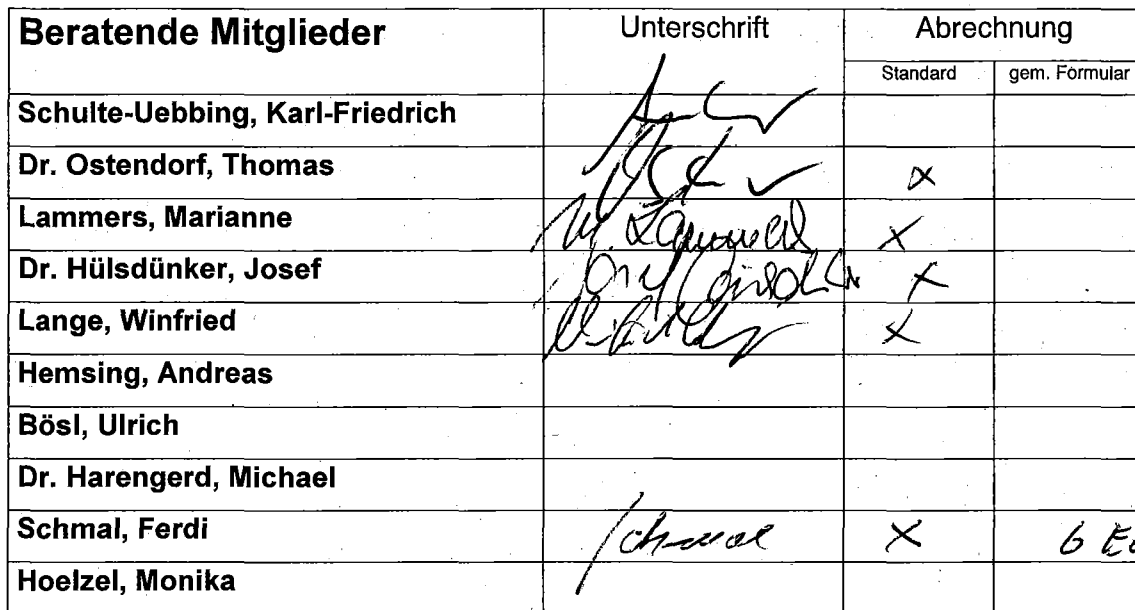 Beratende Mitglieder Unterschrift Abrechnung
Standard gem. Formular
Schulte-Uebbing, Karl-Friedrich
Dr. Ostendorf, Thomas x
Lammers, Marianne M. Lammers x
Dr. Hülsdünker, Josef x
Lange, Winfried x
Hemsing, Andreas
Bösl, Ulrich
Dr. Harengerd, Michael
Schmal, Ferdi Schmal x 6
Hoelzel, Monika